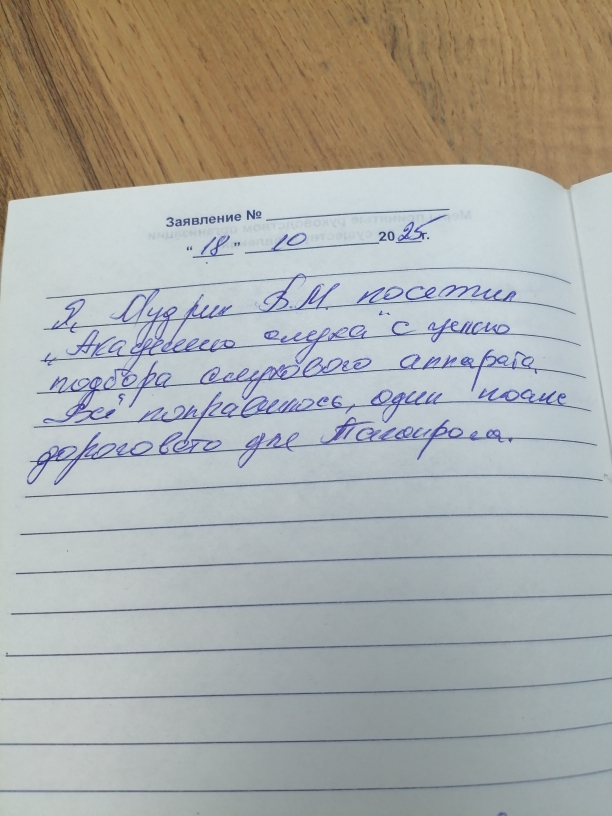 Заявление №
"18" 10 2025г.
Я, Мудрик В.М. посетил
„Академию слуха" с целью
подбора слухового аппарата.
Всё понравилось, один нюанс
дороговато для Таганрога.